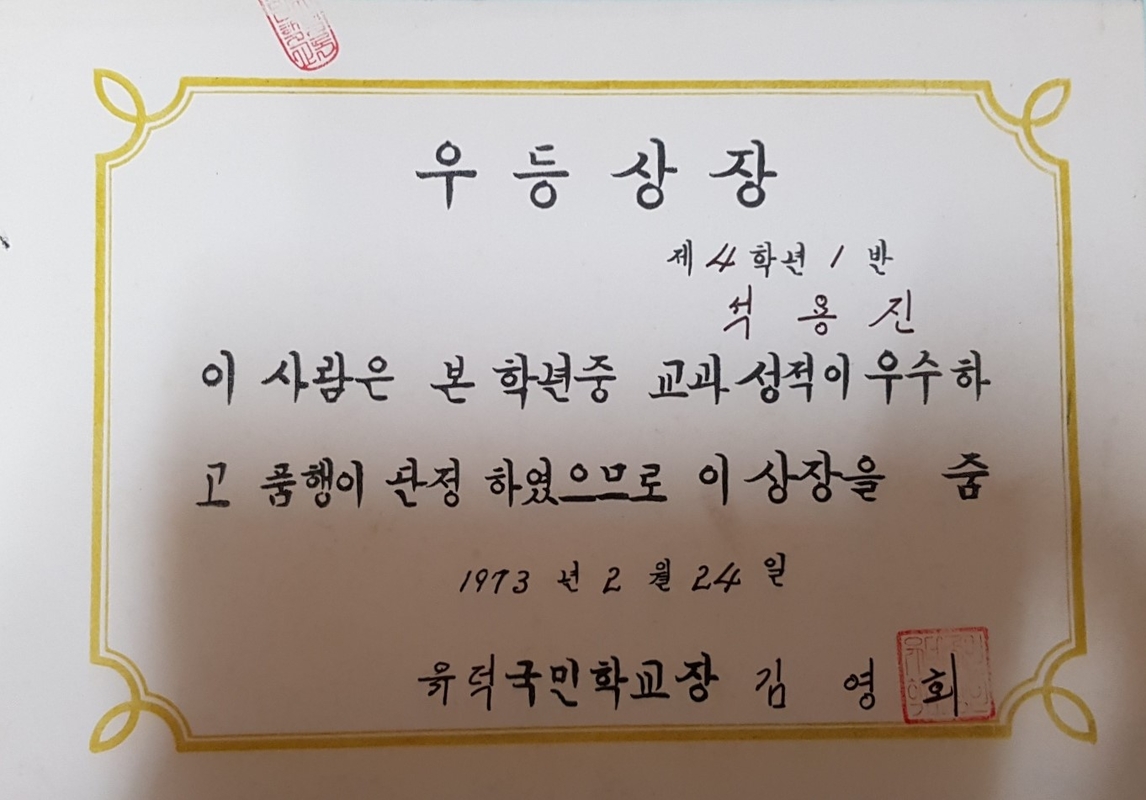 우등상장
제 4 학년 1 반
석 용 진
이 사람은 본 학년중 교과 성적이 우수하
고 품행이 단정 하였으므로 이 상장을 줌
1973 년 2 월 24 일
유덕국민학교장 김 영 회